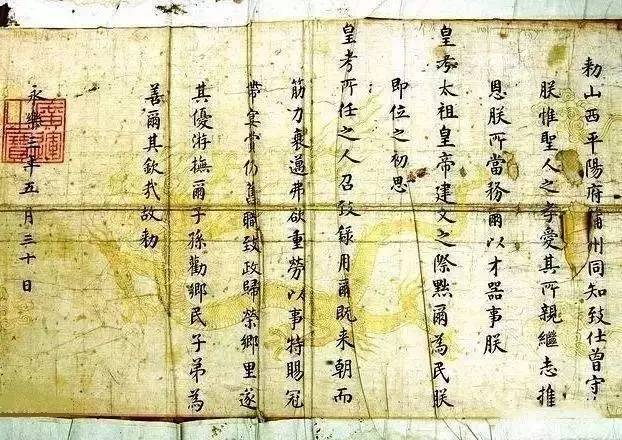 勑山西平陽府蒲州同知致仕曽守
朕惟聖人之孝愛其所親繼志推
恩朕所當務爾以才器事朕
皇考太祖皇帝建文之際黜爾為民朕
即位之初思
皇考所任之人召致録用爾既来朝而
筋力衰邁弗欲重勞以事特賜冠
帶宴賞仍舊職致政歸榮鄉里遂
其優游撫爾子孫勸鄉民子弟為
善爾其欽哉故勑
永樂三年五月三十日